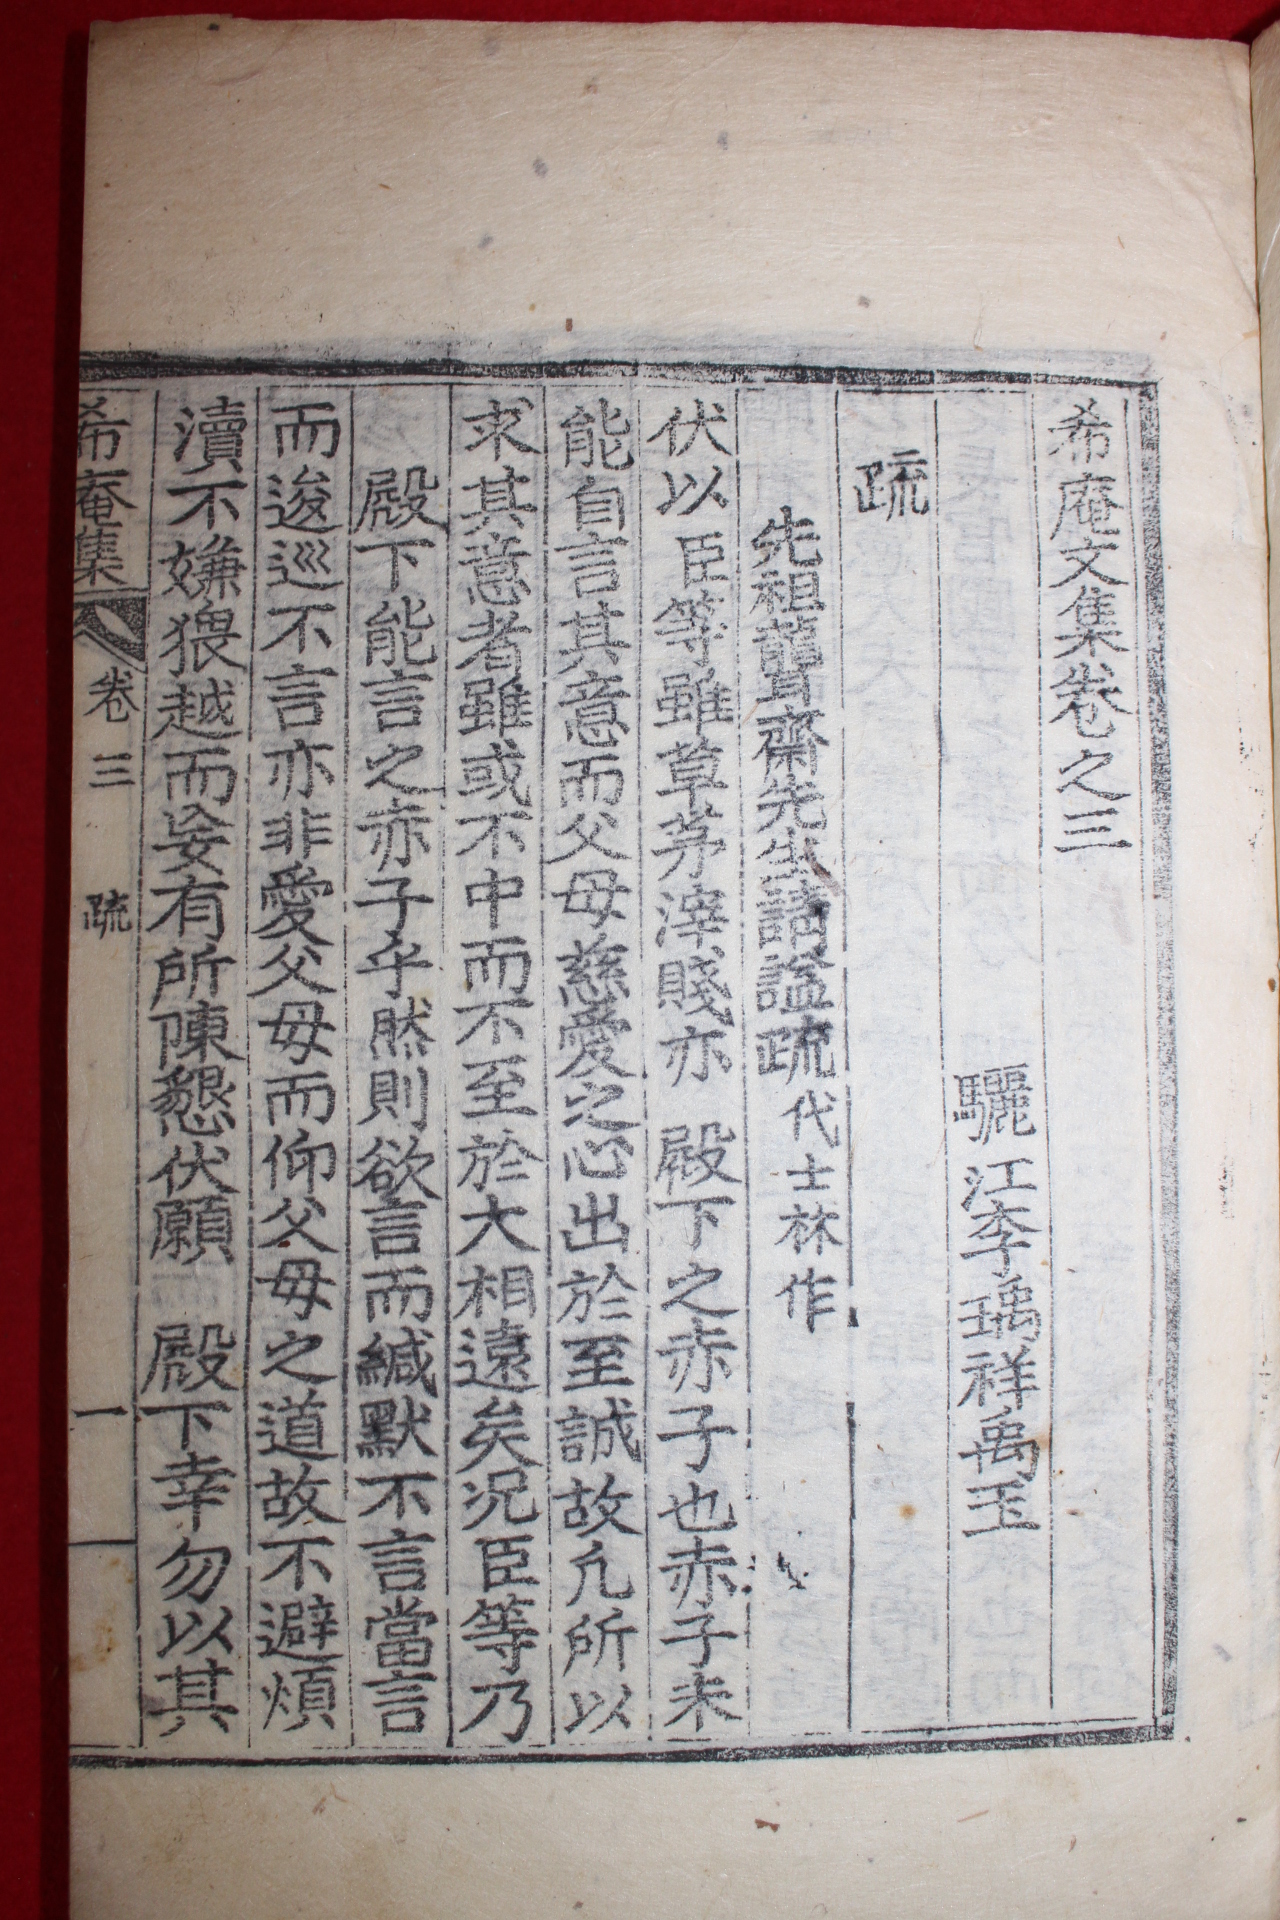 希庵文集卷之三
驪江李瑀祥禹玉
疏
先祖聾齋先生請謚疏代士林作
伏以臣等雖草茅滓賤亦 殿下之赤子也赤子未
能自言其意而父母慈愛之心出於至誠故凡所以
求其意者雖或不中而不至於大相遠矣況臣等乃
殿下能言之赤子乎然則欲言而緘默不言當言
而逡巡不言亦非愛父母而仰父母之道故不避煩
瀆不嫌猥越而妄有所陳懇伏願 殿下幸勿以其
希庵集 卷三 疏 一